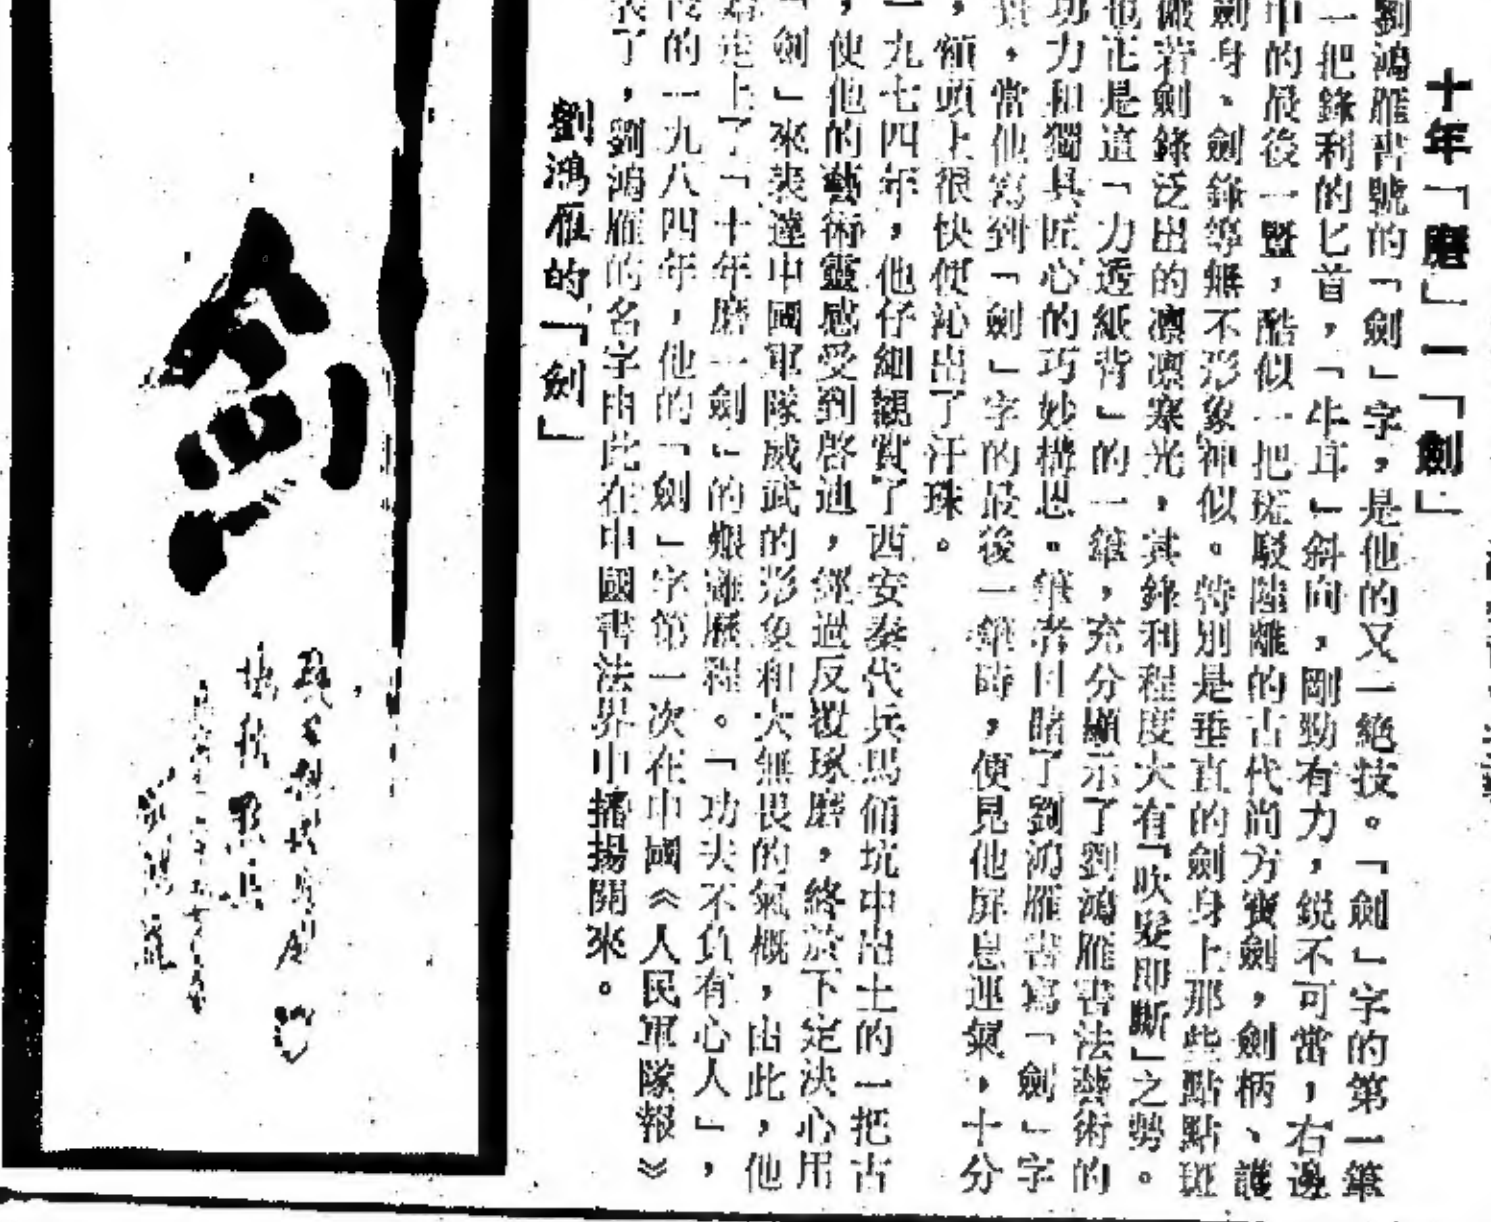 十年「磨」一「劍」
劉鴻雁書號的「劍」字，是他的又一絕技。「劍」字的第一筆
一把鋒利的匕首，「牛耳」斜向，剛勁有力，銳不可當，右邊
中的最後一豎，酷似一把斑駁陸離的古代尚方寶劍，劍柄、護
劍身、劍鋒等無不形象神似。特別是垂直的劍身上那些點點斑
儼若劍鋒泛出的凛凛寒光，其鋒利程度大有「吹髮即斷」之勢。
也正是這「力透紙背」的一筆，充分顯示了劉鴻雁書法藝術的
功力和獨具匠心的巧妙構思。筆者目睹了劉鴻雁書寫「劍」字
，當他寫到「劍」字的最後一筆時，便見他屏息運氣，十分
，額頭上很快便沁出了汗珠。
一九七四年，他仔細觀賞了西安秦代兵馬俑坑中出土的一把古
，使他的藝術靈感受到啓迪，經過反覆琢磨，終於下定決心用
「劍」來表達中國軍隊威武的形象和大無畏的氣概，由此，他
走上了「十年磨一劍」的艱難歷程。「功夫不負有心人」，
的一九八四年，他的「劍」字第一次在中國《人民軍隊報》
了，劉鴻雁的名字由此在中國書法界中播揚開來。
劉鴻雁的「劍」
劍